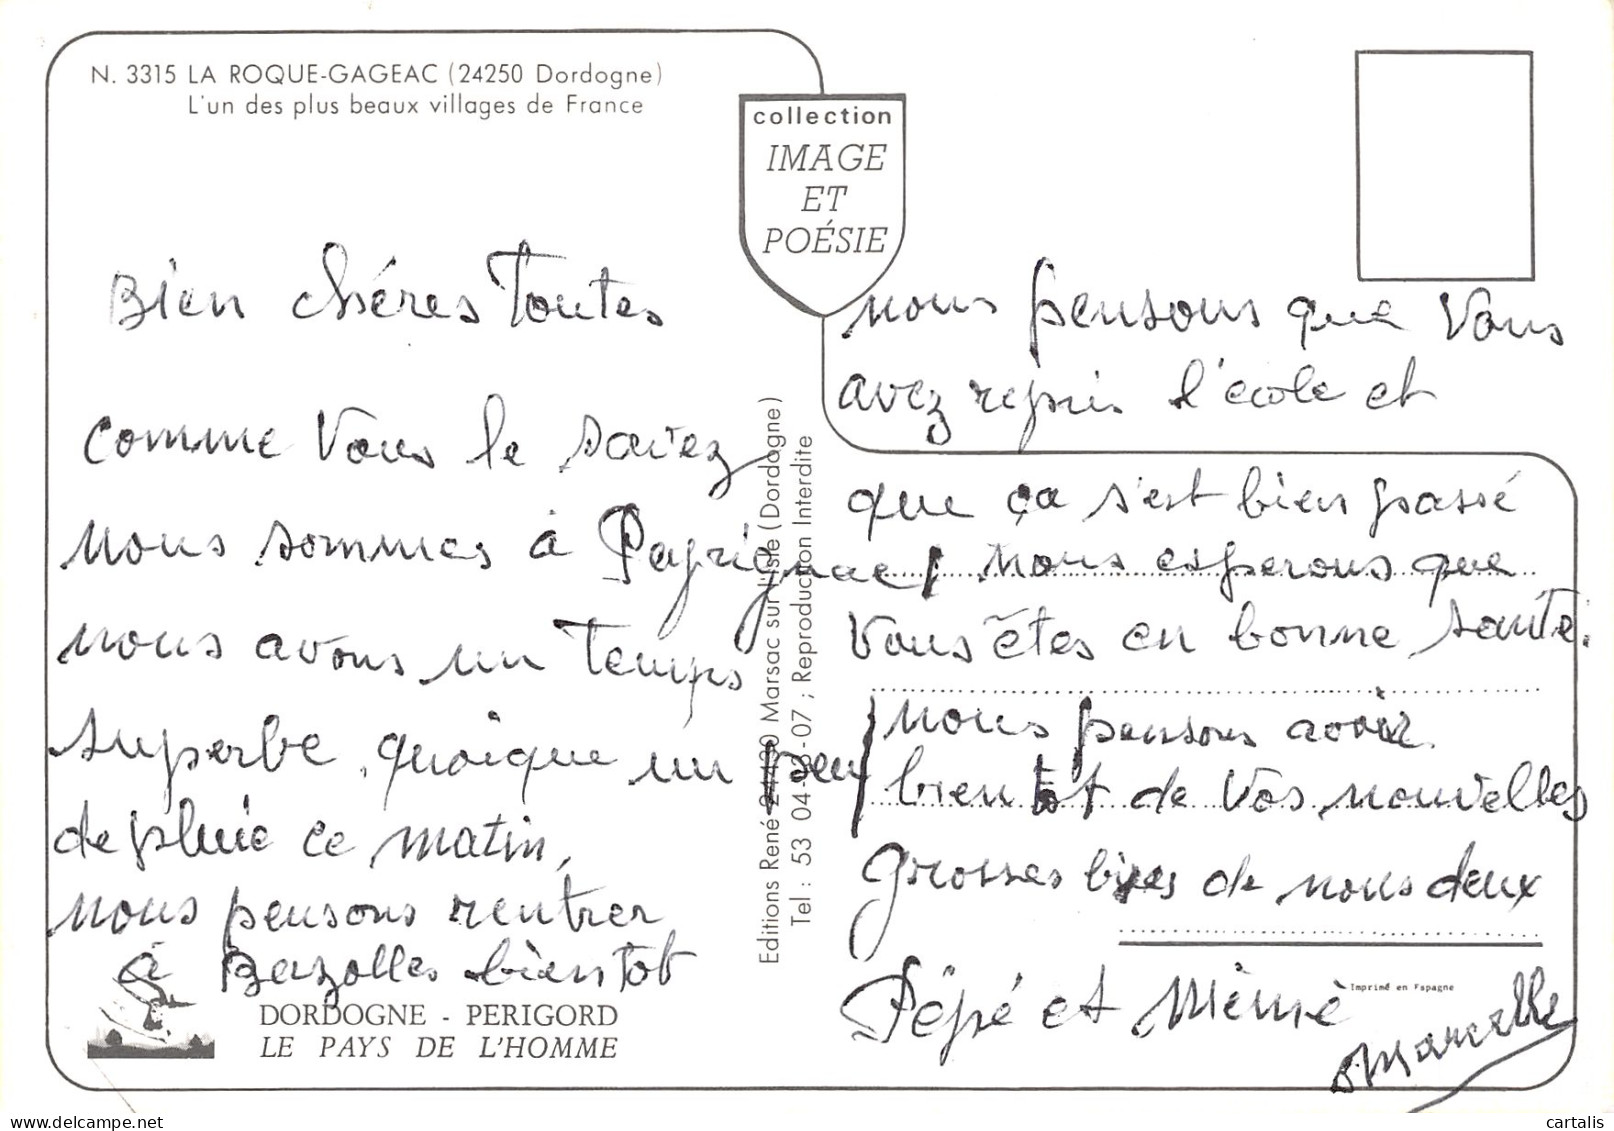 N. 3315 LA ROQUE-GAGEAC (24250 Dordogne)
L'un des plus beaux villages de France
collection
IMAGE
ET
POÉSIE
Bien chéres Toutes
comme Vous le savez
nous sommes à Payrignac,
nous avons un Temps
superbe, quoique un peu
de pluie ce matin,
nous pensons rentrer
à Bazolles bientot
DORDOGNE - PERIGORD
LE PAYS DE L'HOMME
Editions René 24430 Marsac sur l'Isle (Dordogne)
Tel : 53 04-  -07 ; Reproduction Interdite
nous pensons que Vous
avez repris l'école et
que ça s'est bien passé
nous esperons que
Vous êtes en bonne santé.
nous pensons avoir
bientot de Vos nouvelles
grosses bises de nous deux
Pépé et Mémé
Imprimé en Espagne
Marcelle
cartalis
www.delcampe.net